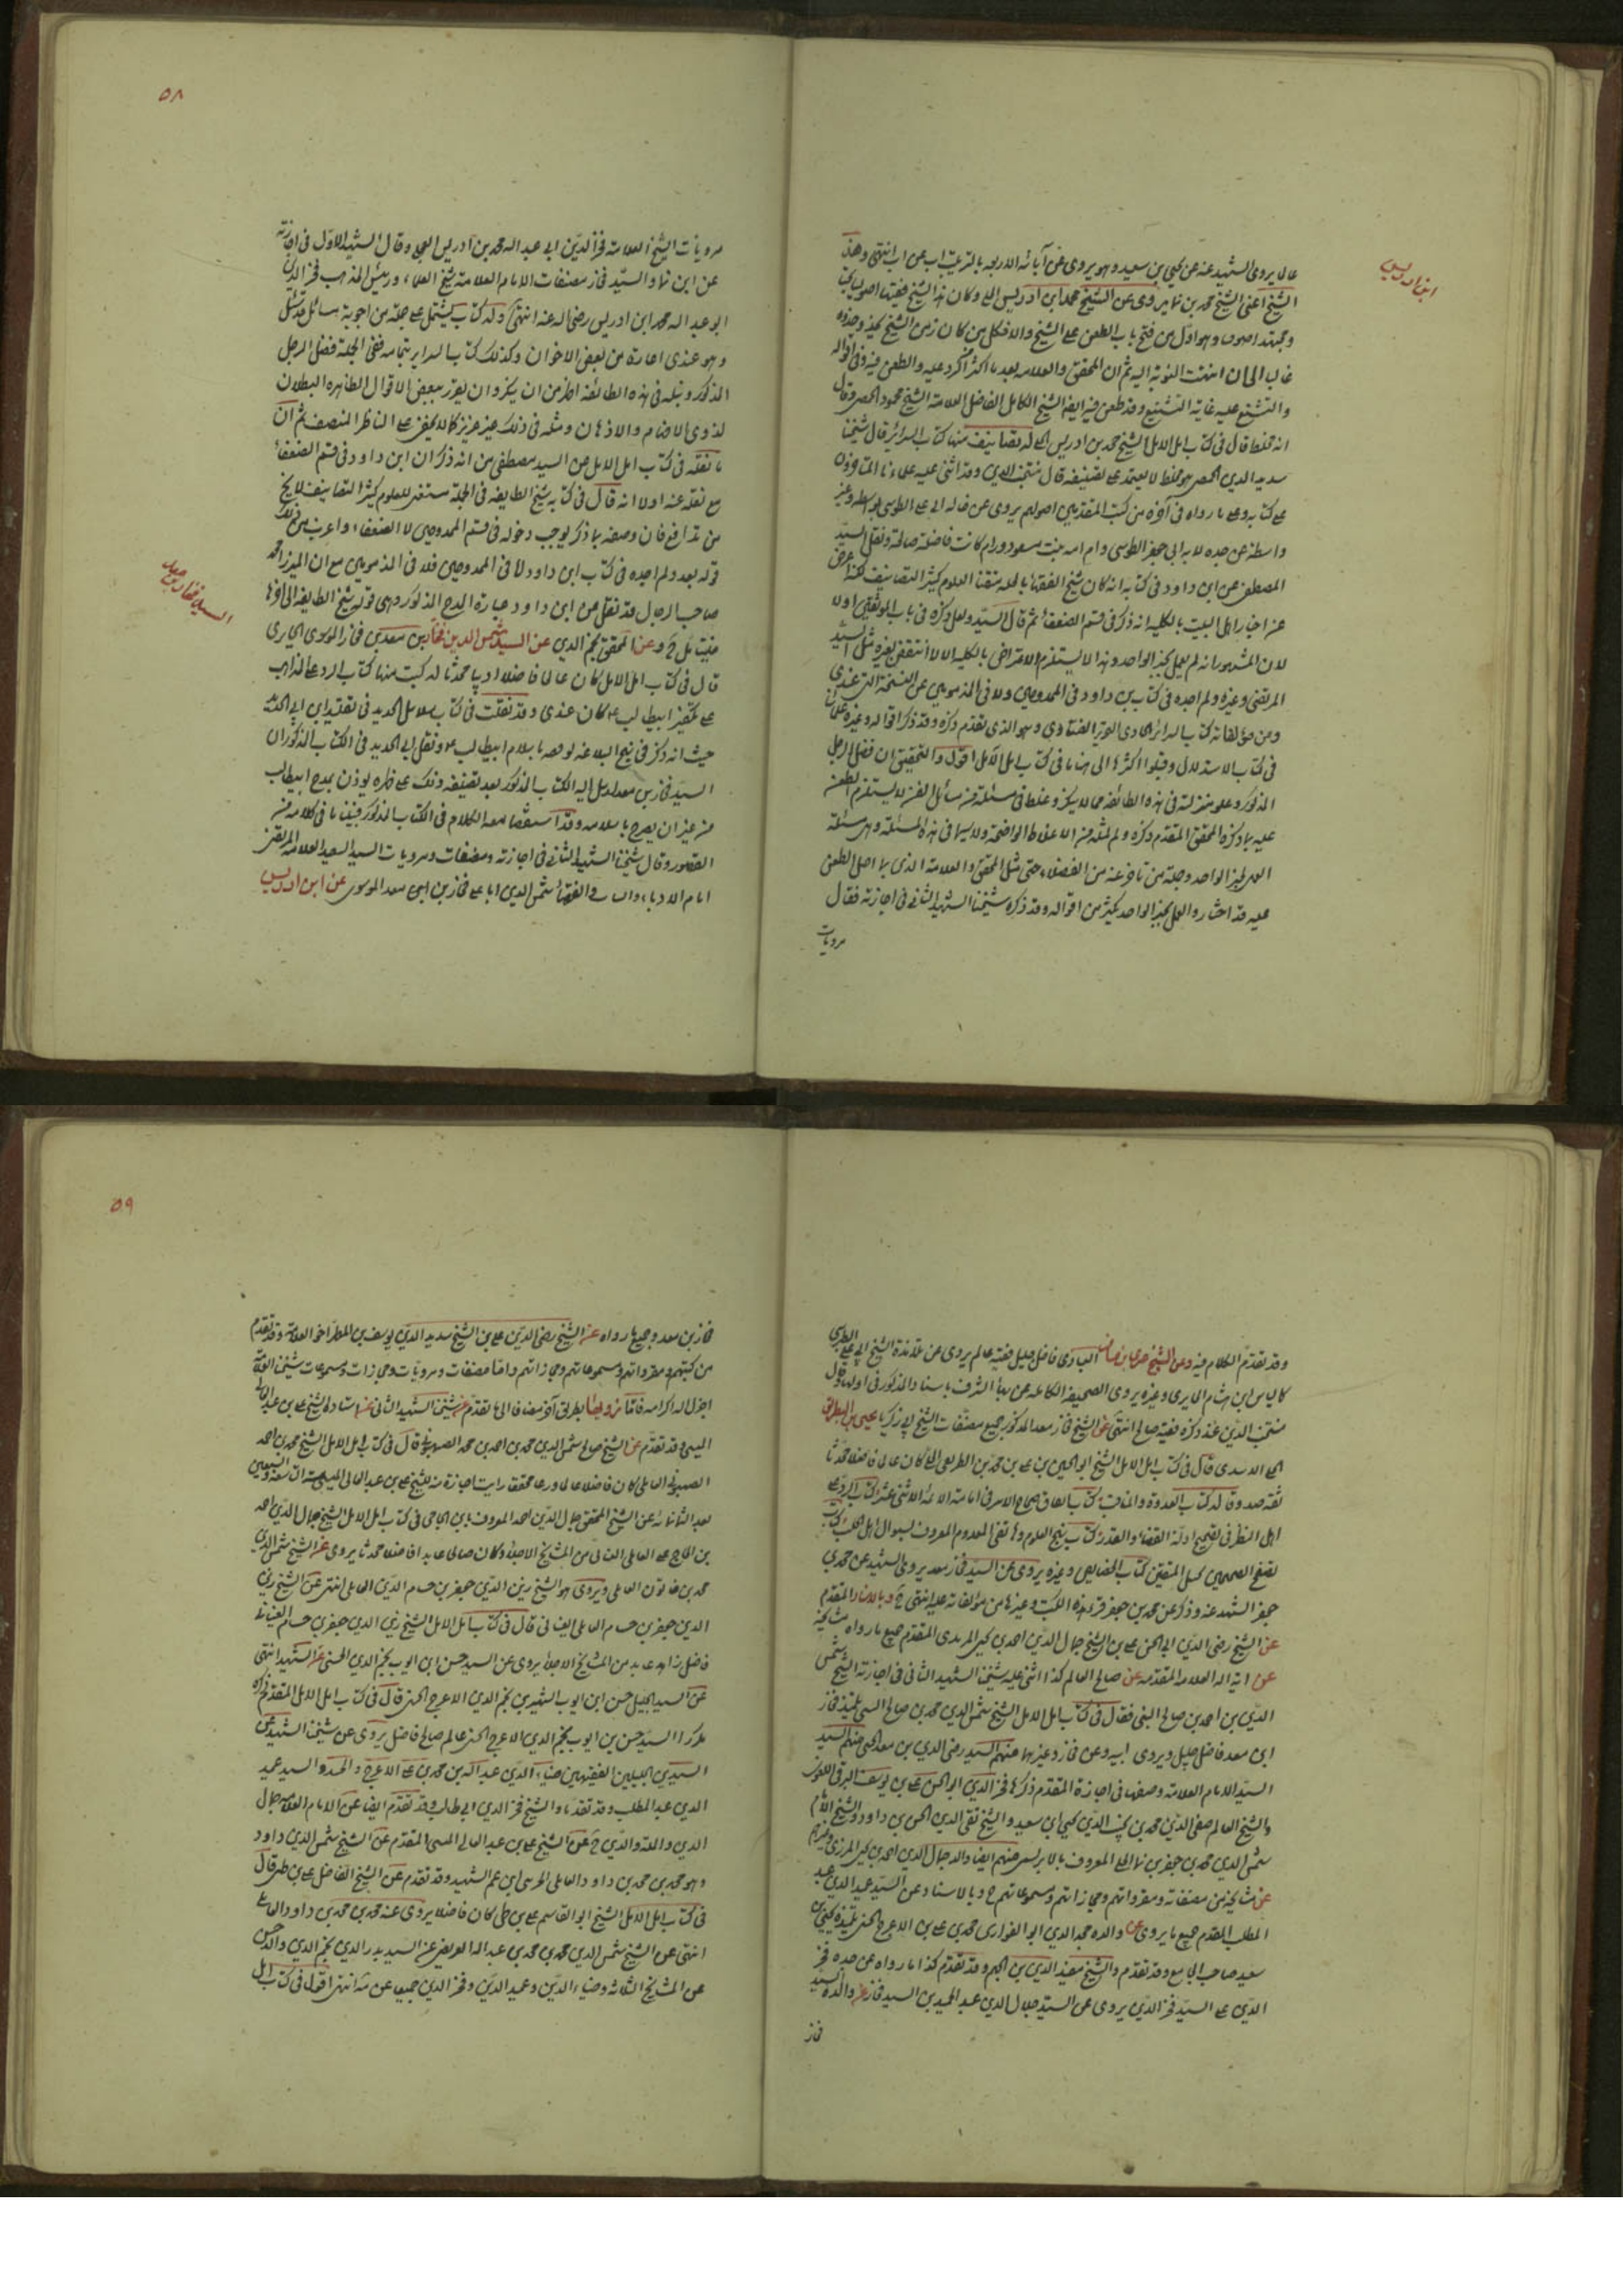 ابن ادريس
عال يروى الشهيد عنه عن يحيى بن سعيد وهو يروى عن آبائه الاربعه بالترتيب اب عن اب انتهى وهذا
الشيخ اعنى الشيخ محمد بن نما يروى عن الشيخ محمد ابن ادريس الحلى وكان هذا الشيخ فقيها اصوليا بحتا
ومجتهدا صرفا وهو اول من فتح باب الطعن على الشيخ والا فكل من كان زمن الشيخ يحذو حذوه
غالبا الى ان انتهت النوبة اليه ثم ان المحقق والعلامه بعده اكثرا الرد عليه والطعن فيه وفى اقواله
والتشنيع عليه غاية التشنيع وقد طعن فيه ايضا الشيخ الكامل الفاضل العلامة الشيخ محمود الحمصى وقال
انه مخلط قال فى كتاب امل الامل الشيخ محمد بن ادريس الحلى له تصانيف منها كتاب السرائر قال شيخنا
سديد الدين الحمصى هو مخلط لا يعتمد على تصنيفه قال منتجب الدين وقد اثنى عليه علماءنا المتأخرون
على كتابه وعلى ما رواه فى آخره من كتب المتقدمين اصولهم يروى عن خاله ابى على الطوسى بواسطه وغير
واسطة عن جده لامه ابى جعفر الطوسى وام امه بنت مسعود ورام كانت فاضلة صالحة ونقل السيد
المصطفى عن ابن داود فى كتابه انه كان شيخ الفقهاء بالحله متقنا للعلوم كثير التصانيف لكنه اعرض
عن اخبار اهل البيت بالكليه انه ذكر فى قسم الضعفاء ثم قال السيد ولعل ذكره فى باب الموثقين اولى
لان المشهور انه لم يعمل بخبر الواحد وهذا لا يستلزم الاعراض بالكليه والا لانتقض بغيره مثل السيد
المرتضى وغيره ولم اجده فى كتاب بن داود فى الممدوحين ولا فى المذمومين عن النسخة التى عندى
ومن مؤلفاته كتاب السرائر الحاوى لتحرير الفتاوى وهو الذى تقدم ذكره وقد ذكر اقواله وغيره علمائنا
فى كتاب الاستدلال وقبلوا اكثرها الى هنا ما فى كتاب امل الآمل اقول والتحقيق ان فضل الرجل
المذكور وعلو منزلته فى هذه الطائفه مما لا ينكر وغلطه فى مسئلة من مسائل الفن لا يستلزم الطعن
عليه بما ذكره المحقق المتقدم ذكره وكم لمثله من الاغلاط الواضحة ولا سيما فى هذه المسئلة وهى مسئلة
العمل بخبر الواحد وجملة من تاخر عنه من الفضلاء حتى مثل المحقق والعلامة الذى هما اصل الطعن
عليه قد اختاروا العمل بخبر الواحد بكثير من اقواله وقد ذكره شيخنا الشهيد الثانى فى اجازته فقال
مرويات
٥٨
مرويات الشيخ العلامة فخر الدين ابى عبد اله محمد بن ادريس العجلى وقال الشهيد الاول فى اجازته
عن ابن نما والسيد فخار مصنفات الامام العلامة شيخ العلماء ورئيس المذهب فخر الدين
ابو عبد اله محمد ابن ادريس رضى اله عنه انتهى وله كتاب يشتمل على جملة من اجوبة مسائل قد سئل
وهو عندى اعارة من بعض الاخوان وكذلك كتاب السراير بتمامه ففى الجملة فضل الرجل
المذكور ونبله فى هذه الطائفة اظهر من ان ينكر وان تفرد ببعض الاقوال الظاهره البطلان
لذوى الافهام والاذهان ومثله فى ذلك غير عزيز كما لا يخفى على الناظر المنصف ثم ان
ما نقله فى كتاب امل الامل من السيد مصطفى من انه ذكر ان ابن داود فى قسم الضعفاء
مع نقله عنه اولا انه قال فى كتابه شيخ الطايفه فى الحلة متقن للعلوم كثير التصانيف لا يخ
من تدافع فان وصفه بما ذكر يوجب دخوله فى قسم الممدوحين لا الضعفاء واعرب من ذلك
قوله بعد ولم اجده فى كتاب ابن داود لا فى الممدوحين فلا فى المذمومين مع ان الميرزا محمد
صاحب الرجال قد نقل عن ابن داود عبارة المدح المذكور وهى قوله شيخ الطايفه الى آخرها
السيد فخار بن معد
فليتامل ح وعن المحقق نجم الدين عن السيد شمس الدين فخار بن معد بن فخار الموسوى الحايرى
قال فى كتاب امل الامل كان عالما فاضلا اديبا محدثا له كتب منها كتاب الرد على الذاهب
على تكفير ابيطالب ع كان عندى وقد نقلت فى كتاب سلاسل الحديد فى تقييد ابن ابى الحديد
حيث انه ذكر فى نهج البلاغه توقفه باسلام ابيطالب ع ونقل ابى الحديد فى الكتاب المذكور ان
السيد فخار بن معد ارسل اليه الكتاب المذكور بعد تصنيفه وذلك على ظهره يوذن بمدح ابيطالب
من غير ان يصرح باسلامه وقد استقصا معه الكلام فى الكتاب المذكور فبينا ما فى كلامه من
القصور وقال شيخنا الشهيد الثانى فى اجازته ومصنفات ومرويات السيد السعيد العلامه المرتضى
امام الادباء والنساب والفقهاء شمس الدين ابا على فخار بن ابى معد الموسوى عن ابن ادريس
وقد تقدم الكلام فيه وعن الشيخ عربى بن مسافر العبادى فاضل جليل فقيه عالم يروى عن تلامذة الشيخ ابى على الطوسى
كالياس ابن هشام الحايرى وغيره يروى الصحيفة الكاملة عن بهاء الشرف باسناد المذكور فى اولها وقال
منتجب الدين عند ذكره فقيه صالح انتهى عن الشيخ فخار معد المذكور جميع مصنفات الشيخ ابى زكريا يحيى بن البطريق
الحلى الاسدى قال فى كتاب امل الامل الشيخ ابو الحسين بن على بن محمد بن البطريق الحلى كان عالما فاضلا محدثا
ثقه صدوقا له كتاب العمدة والمناقب كتاب اتفاق صحاح الاثر فى امامة الائمة الاثنى عشر كتاب الرد على
اهل النظر فى تصفح ادلة القضاء والقدر كتاب نهج العلوم وما نفى المعدوم المعروف بسوال اهل حلب كتاب
تصفح الصحيحين تحليل المتقين كتاب الخصايص وغيره يروى عن السيد فخار بن معد يروى الشهيد عن محمد بن
جعفر المشهدى عنه وذكر عن محمد بن جعفر قراءة هذه الكتب وغيرها من مؤلفاته عليه انتهى ح وبالاسناد المقدم
عن الشيخ رضى الدين ابى الحسن على بن الشيخ جمال الدين احمد بن يحيى المزيدى المتقدم جميع ما رواه مشايخه
عن اية اله العلامه المتقدمه عن صالح العالم كذا اثنى عليه شيخنا الشهيد الثانى فى اجازته الشيخ شمس
الدين بن احمد بن صالح السيبى فقال فى كتاب امل الامل الشيخ شمس الدين محمد بن صالح السيبى تلميذ فخار
ابن معد فاضل جليل ويروى ابيه وعن فخار وغيرهما منهم السيد رضى الدين بن معد الحسنى منهم السيد
السيد الامام العلامة وصفها فى اجازة المتقدم ذكرها فخر الدين ابو الحسن على بن يوسف البوقى اللغوى
والشيخ العالم صفى الدين محمد بن نجيب الدين يحيى ابن سعيد والشيخ تقى الدين الحسن بن داود والشيخ الامام
شمس الدين محمد بن جعفر بن نما الحلى المعروف بالابريسمى منهم ايضا والد جمال الدين احمد بن يحيى المزيدى وغيرهم
عن مشايخه من مصنفاته ومقرواتهم ومجازاتهم ومسموعاتهم ح وبالاسناد عن السيد عميد الدين عبد
المطلب المقدم جميع ما يروى عن والده مجد الدين ابو الفوارس محمد بن على بن الاعرج الحسينى تلميذه يحيى بن
سعيد صاحب الجامع وقد تقدم والشيخ مفيد الدين بن الجهم وقد تقدم كذا ما رواه عن جده فخر
الدين على السيد فخر الدين يروى عن السيد جلال الدين عبد الحميد بن السيد فخار عن والده السيد
فخار
٥٩
فخار بن معد وجميع ما رواه عن الشيخ رضى الدين على بن الشيخ سديد الدين يوسف بن المطهر اخو العلامة وقد تقدم
من كتبهم ومقرواتهم ومسموعاتهم ومجازاتهم واما مصنفات ومرويات ومجازات ومسموعات شيخنا العلامة
اجزل اله اكرامه فانا نرويها بطرق آخر مضافا الى ما تقدم عن شيخنا الشهيد الثانى عن استاده الشيخ على بن عبد العالى
الميسى وقد تقدم عن الشيخ صالح شمس الدين محمد بن احمد بن محمد الصهيونى قال فى كتاب امل الامل الشيخ محمد بن احمد
الصهيونى العاملى كان فاضلا عالما ورعا محققا رايت اجازة منه للشيخ على بن عبد العالى الميسى سنة تسعة وسبعين
بعد الثمانمائه عن الشيخ المحقق جمال الدين احمد المعروف بابن الحاجى فى كتاب امل الامل الشيخ جمال الدين احمد
بن الحاج على العاملى العيناثى من المشايخ الاجلاء وكان صالحا عابدا فاضلا محدثا يروى عن الشيخ شمس الدين
محمد بن خاتون العاملى ويروى هو الشيخ زين الدين جعفر بن حسام الدين العاملى انتهى عن الشيخ زين
الدين جعفر بن حسام العاملى العيناثى قال فى كتاب امل الامل الشيخ زين الدين جعفر بن حسام العيناثى
فاضل زاهد عابد من المشايخ الاجلاء يروى عن السيد حسن ابن ايوب نجم الدين الحسينى عن الشهيد انتهى
عن السيد الجليل حسن ابن ايوب الشهير بن نجم الدين الاعرج الحسينى قال فى كتاب امل الامل المتقدم ذكره
مكررا السيد حسن بن ايوب نجم الدين الاعرج الحسينى عالم صالح فاضل يروى عن شيخنا الشهيد عن
السيدين الجليلين الفقيهين ضياء الدين عبد اله بن محمد بن على الاعرج والسيد عميد
الدين عبد المطلب وقد تقدما والشيخ فخر الدين ابى طالب وقد تقدم ايضا عن الامام العلامه جمال
الدين والملة والدين ح عن الشيخ على بن عبد العالى الميسى المتقدم عن الشيخ شمس الدين داود
وهو محمد بن محمد بن داود العاملى الجزينى ابن عم الشهيد وقد تقدم عن الشيخ الفاضل على بن طى قال
فى كتاب امل الامل الشيخ ابو القاسم على بن طى كان فاضلا يروى عنه محمد بن محمد بن داود العاملى
انتهى عن الشيخ شمس الدين محمد بن محمد بن عبد اله العريضى عن السيد بدر الدين نجم الدين والد حسن
عن المشايخ الثلاثه وضياء الدين وعميد الدين وفخر الدين جميعا عن مة انتهى اقول فى كتاب امل